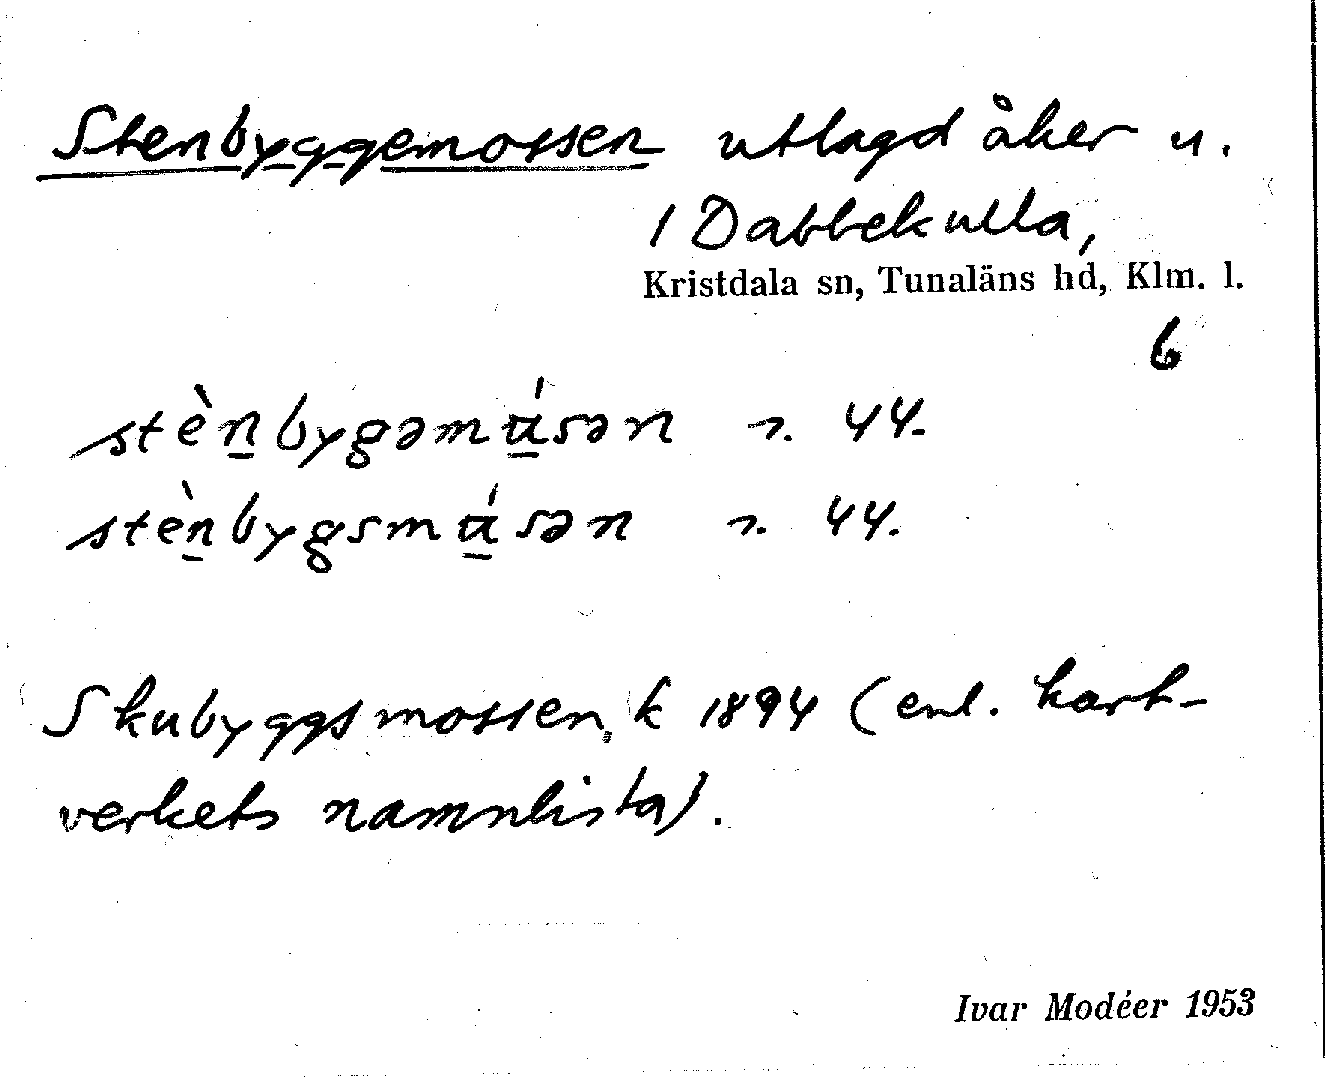 Stenbyggemossen utlagd åker u.
1 Dabbekulla,
Kristdala sn, Tunaläns hd, Klm. l.
6
stèn̲bygəmú̲sən r. 44.
stèn̲bygsmú̲sən r. 44.
Skubyggsmossen, k 1894 (enl. kart-
verkets namnlista).
Ivar Modéer 1953